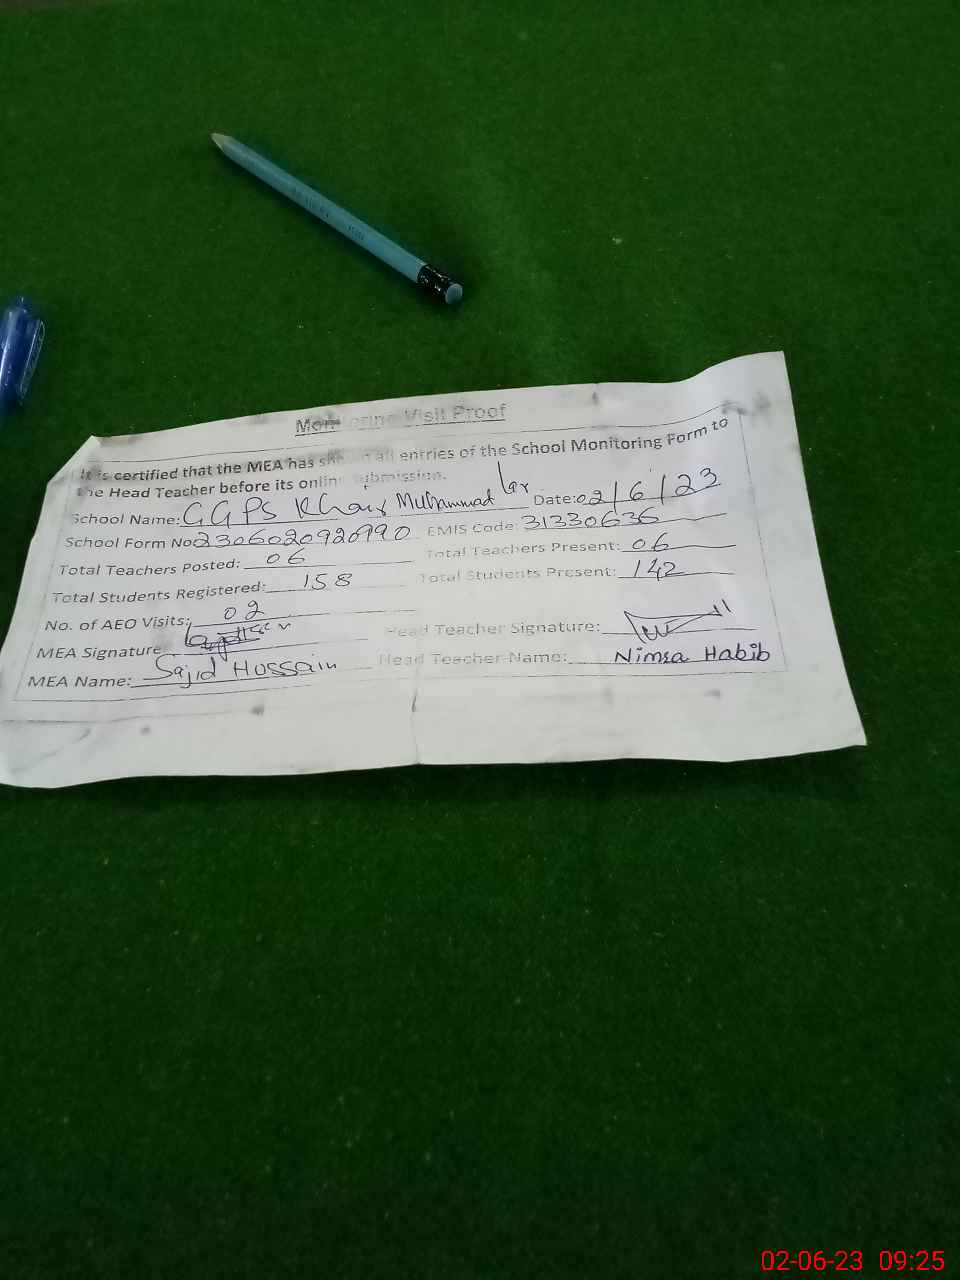 Monitoring Visit Proof
It is certified that the MEA has shown all entries of the School Monitoring Form to
the Head Teacher before its online submission.
School Name: GGPS Khair Muhammad Lar Date: 02/6/23
School Form No: 2306020920990 EMIS Code: 31330636
Total Teachers Posted: 06 Total Teachers Present: 06
Total Students Registered: 158 Total Students Present: 142
No. of AEO Visits: 02
MEA Signature Head Teacher Signature:
MEA Name: Sajid Hussain Head Teacher Name: Nimra Habib
02-06-23 09:25